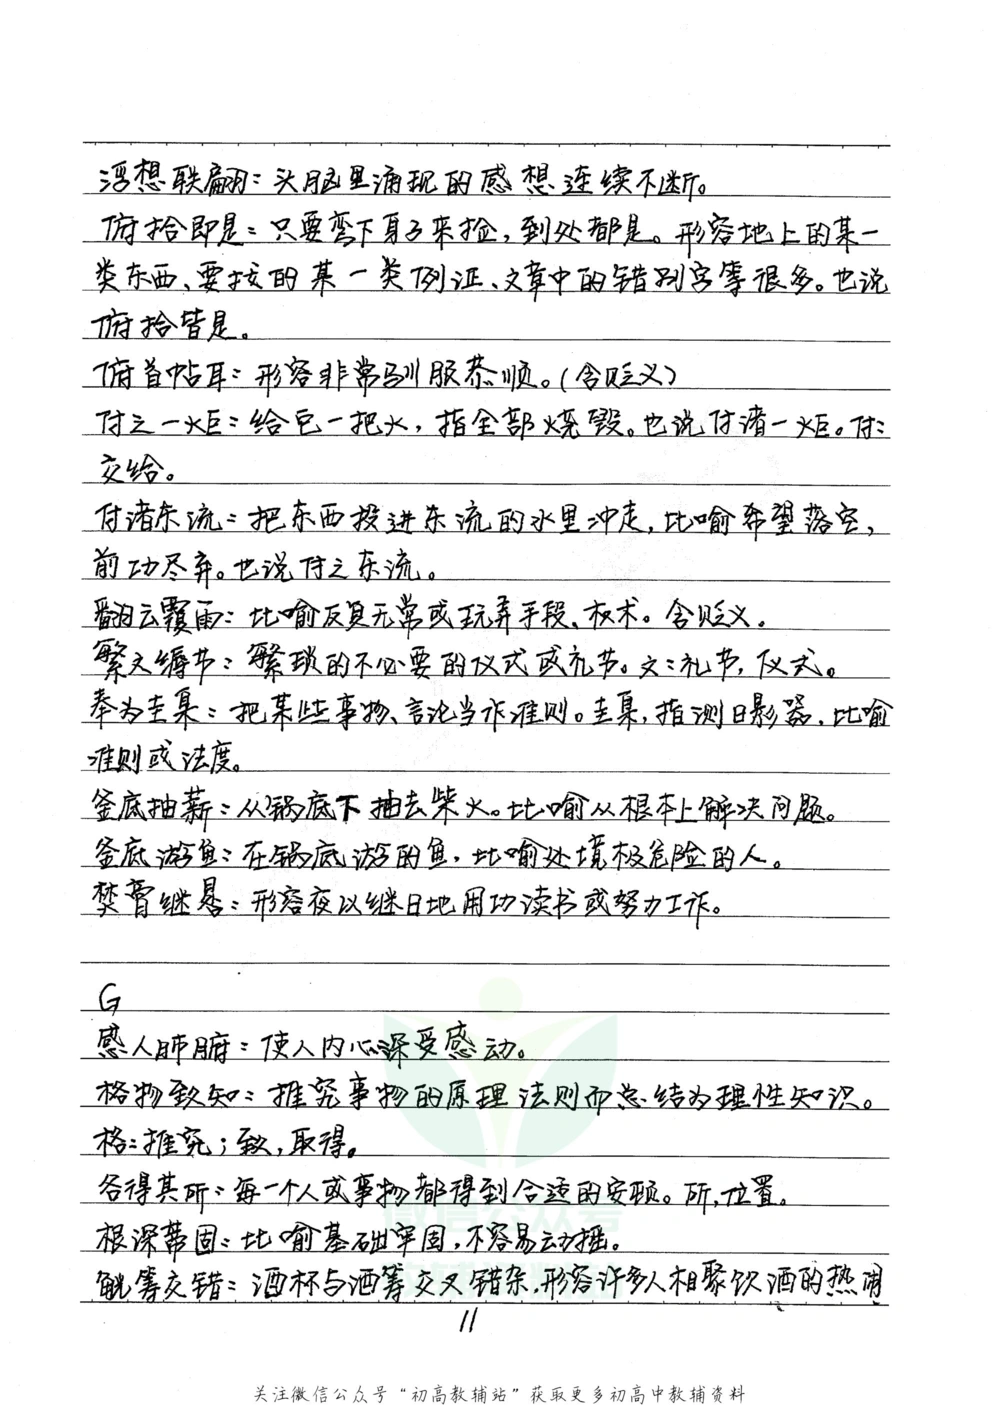 浮想联翩：头脑里涌现的感想连续不断。
俯拾即是：只要弯下身子来捡，到处都是。形容地上的某一
类东西、要找的某一类例证、文章中的错别字等很多。也说
俯拾皆是。
俯首帖耳：形容非常驯服恭顺。（含贬义）
付之一炬：给它一把火，指全部烧毁。也说付诸一炬。付：
交给。
付诸东流：把东西投进东流的水里冲走，比喻希望落空，
前功尽弃。也说付之东流。
翻云覆雨：比喻反复无常或玩弄手段、权术。含贬义。
繁文缛节：繁琐的不必要的仪式或礼节。文：礼节，仪式。
奉为圭臬：把某些事物、言论当作准则。圭臬，指测日影器，比喻
准则或法度。
釜底抽薪：从锅底下抽去柴火。比喻从根本上解决问题。
釜底游鱼：在锅底游的鱼，比喻处境极危险的人。
焚膏继晷：形容夜以继日地用功读书或努力工作。
G
感人肺腑：使人内心深受感动。
格物致知：推究事物的原理法则而总结为理性知识。
格：推究；致，取得。
各得其所：每一个人或事物都得到合适的安顿。所，位置。
根深蒂固：比喻基础牢固，不容易动摇。
觥筹交错：酒杯与酒筹交叉错杂，形容许多人相聚饮酒的热闹
11
关注微信公众号“初高教辅站”获取更多初高中教辅资料